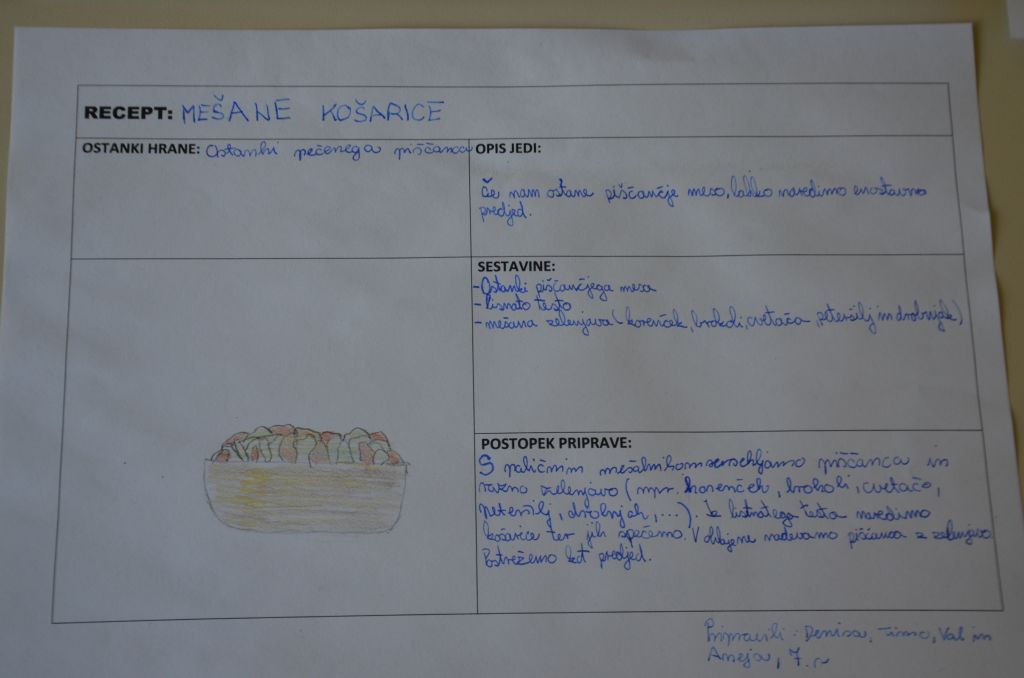 RECEPT: MEŠANE KOŠARICE
OSTANKI HRANE: Ostanki pečenega piščanca
OPIS JEDI:
Če nam ostane piščančje meso, lahko naredimo enostavno
predjed.
SESTAVINE:
- Ostanki piščančjega mesa
- listnato testo
- mešana zelenjava (korenček, brokoli, cvetača, peteršilj in drobnjak)
POSTOPEK PRIPRAVE:
S paličnim mešalnikom sesekljamo piščanca in
razno zelenjavo (npr. korenček, brokoli, cvetačo,
peteršilj, drobnjak, ...). Iz listnatega testa naredimo
košarice ter jih spečemo. V ohlajene nadevamo piščanca z zelenjavo.
Postrežemo kot predjed.
Pripravili: Denisa, Timo, Val in
Aneja, 7.